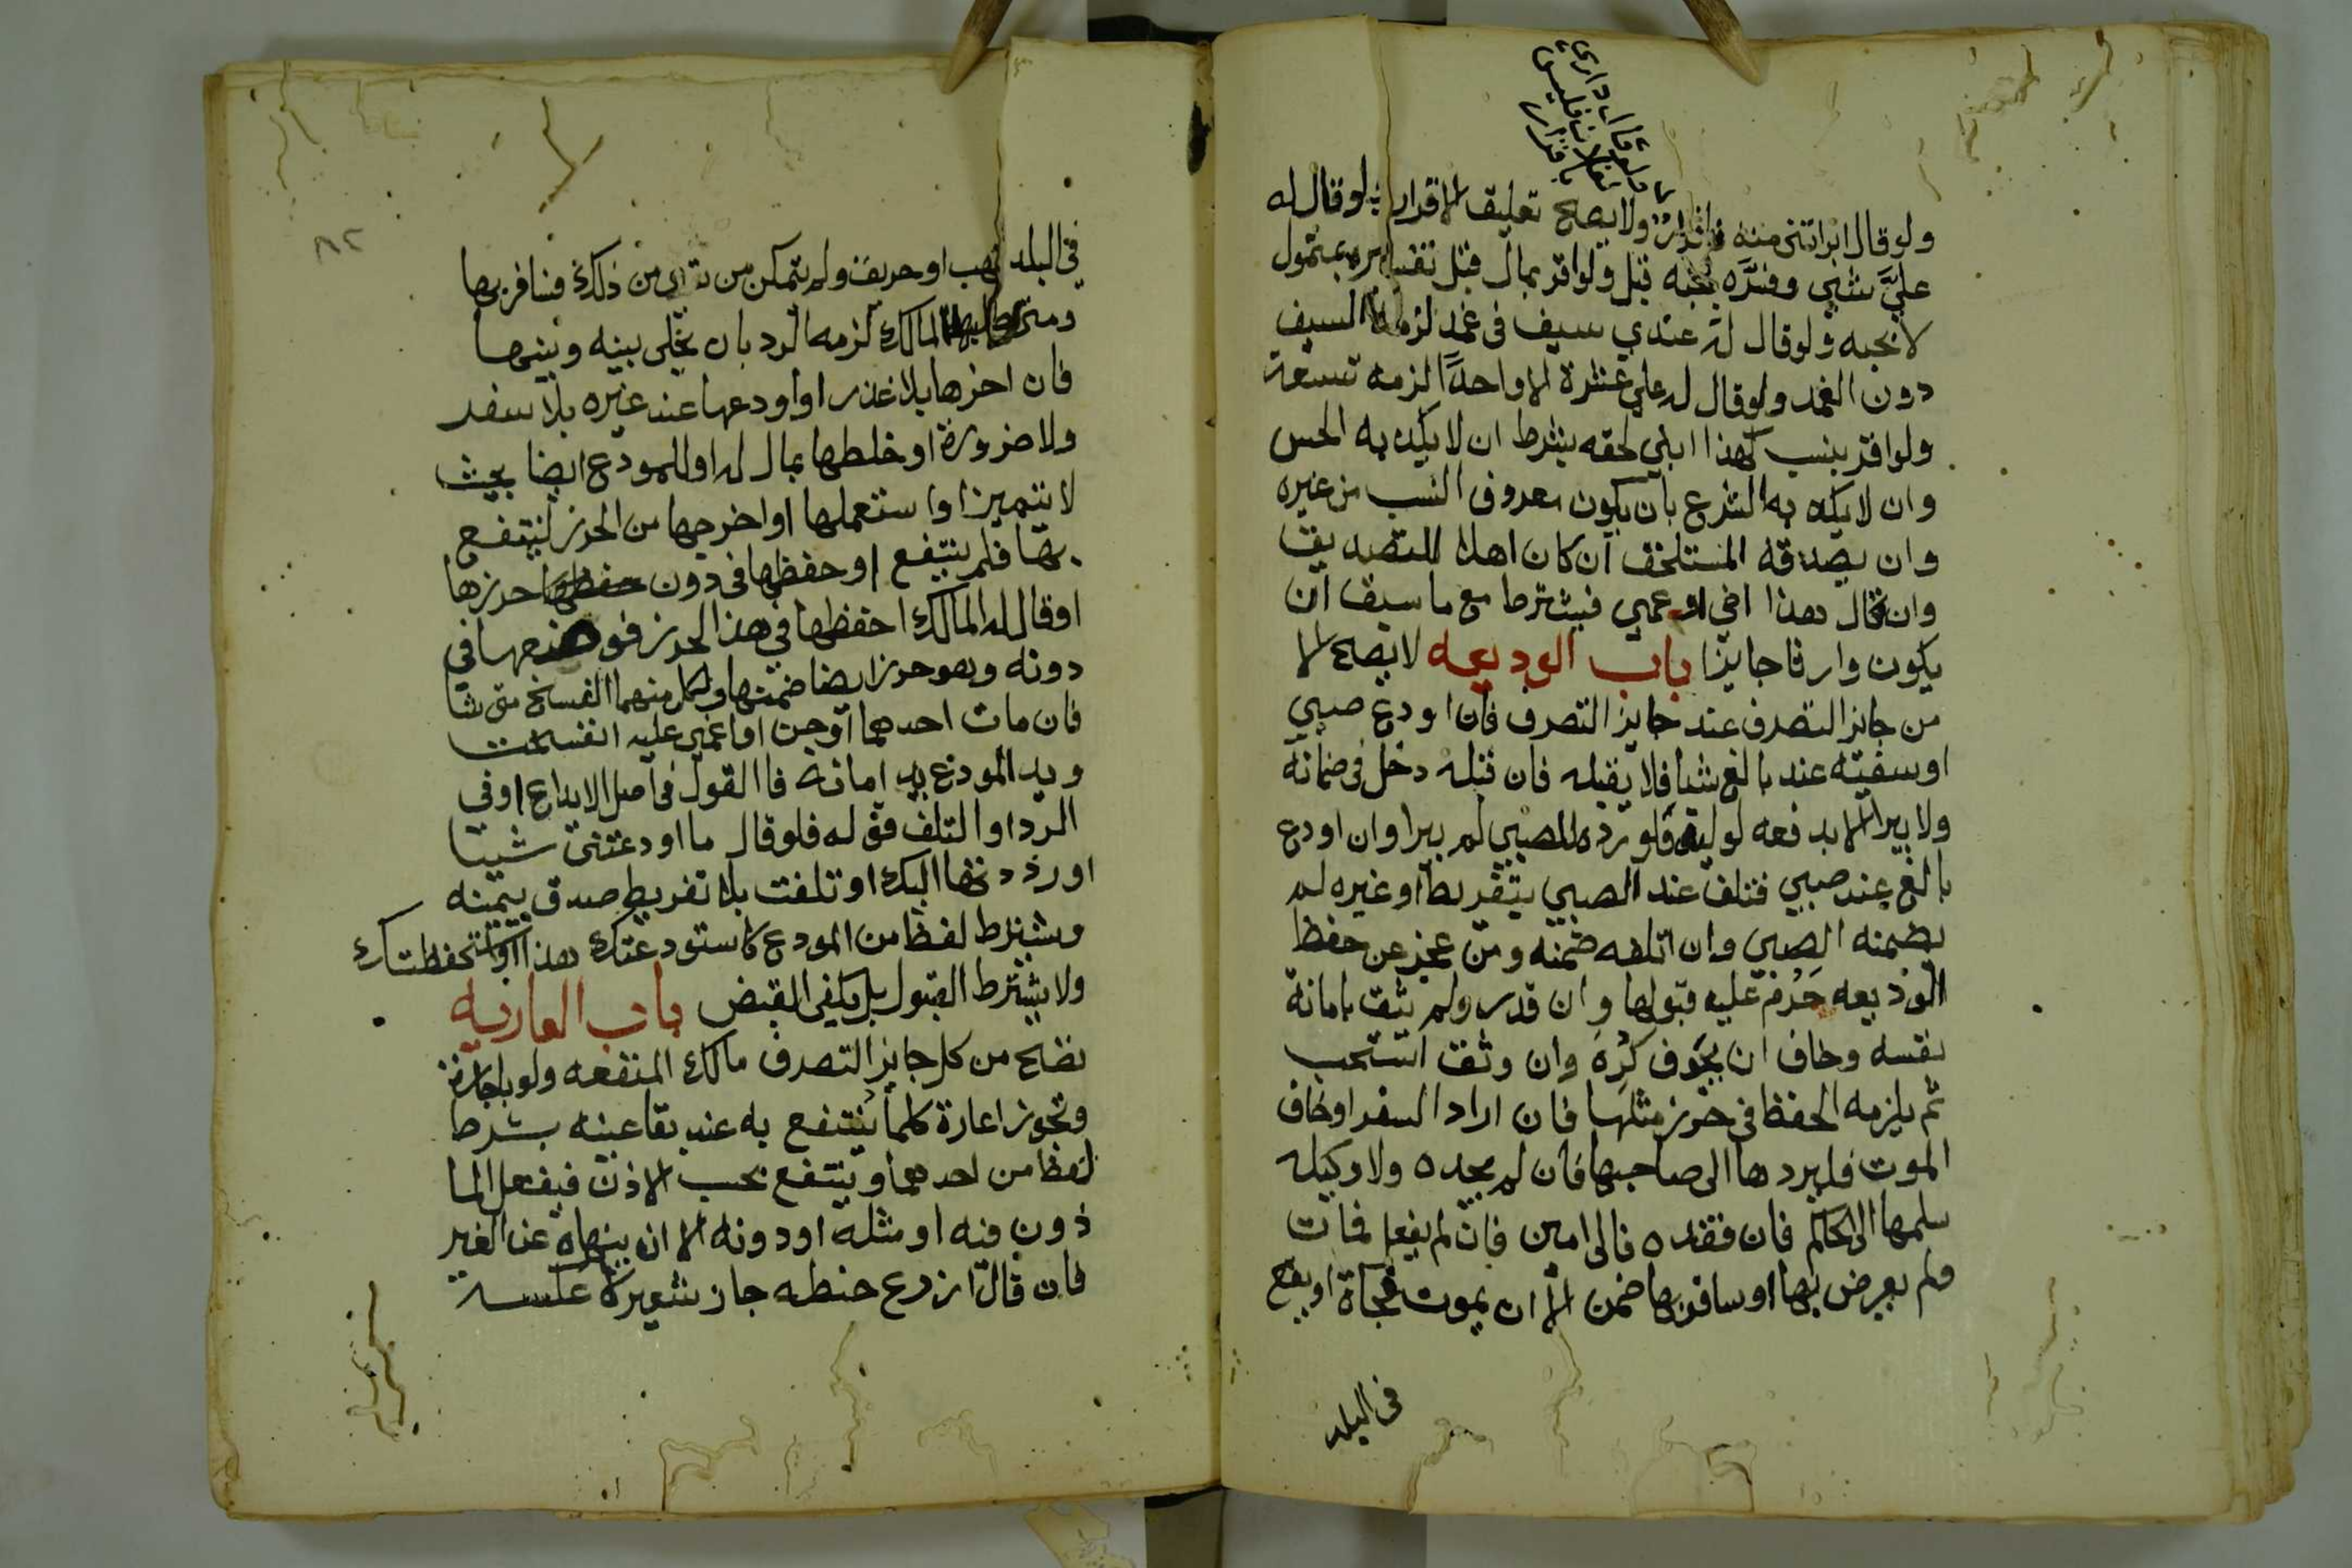 ولو قال داري
لفلان فليس
باقرار
ولو قال ابراتني منه فاقرار ولا يصح تعليق الاقرار ولو قال له
علي شي وفسره بحبه قبل ولو اقر بمال قبل تفسيره بمتمول
لا بحبه ولو قال له عندي سيف في غمد لزمه السيف
دون الغمد ولو قال له علي عشرة الا واحدا لزمه تسعة
ولو اقر بنسب كهذا ابني لحقه بشرط ان لا يكذبه الحس
وان لا يكذبه الشرع بان يكون معروف النسب من غيره
وان يصدقه المستلحق ان كان اهلا للتصديق
وان قال هذا اخي او عمي فيشترط مع ما سبق ان
يكون وارثا حايزا باب الوديعه لا يصح الا
من جايز التصرف عند جايز التصرف فان اودع صبي
او سفيه عند بالغ شيا فلا يقبله فان قبله دخل في ضمانه
ولا يبرا الا بدفعه لوليه فلو رده للصبي لم يبرا وان اودع
بالغ عند صبي فتلف عند الصبي بتفريط او غيره لم
يضمنه الصبي وان اتلفه ضمنه ومن عجز عن حفظ
الوديعه حَرُم عليه قبولها وان قدر ولم يثق بامانة
نفسه وخاف ان يخوف كُرِهَ وان وثق استحب
ثم يلزمه الحفظ في حرز مثلها فان اراد السفر او خاف
الموت فليردها الى صاحبها فان لم يجده ولا وكيله
سلمها الى الحاكم فان فقده فالى امين فان لم يفعل فمات
ولم يعرض بها او سافر بها ضمن الا ان يموت فجاة او يقع
في البلد
٨٢
في البلد نهب او حريق ولم يتمكن من من ذلك فسافر بها
ومتى طلبها المالك لزمه الرد بان يخلي بينه وبينها
فان اخرها بلا عذر او اودعها عند غيره بلا سفر
ولا ضرورة او خلطها بمال له او للمودع ايضا بحيث
لا تتميز او استعملها او اخرجها من الحرز لينتفع
بها فلم ينتفع او حفظها في دون حفظها حرزها
او قال له المالك احفظها في هذا الحرز فوضعها في
دونه وهو حرز ايضا ضمنها ولكل منهما الفسخ متى شا
فان مات احدهما او جن او اغمي عليه انفسخت
ويد المودع يد امانه فالقول في اصل الايداع او في
الرد او التلف قوله فلو قال ما اودعتني شيا
او رددتها اليك او تلفت بلا تفريط صدق بيمينه
ويشترط لفظ من المودع كاستودعتك هذا او استحفظتك
ولا يشترط القبول بل يكفي القبض باب العاريه
تصح من كل جايز التصرف مالك المنفعه ولو باجارة
وتجوز اعارة كلما ينتفع به عند بقا عينه بشرط
لفظ من احدهما وينتفع بحسب الاذن فيفعل الما
ذون فيه او مثله او دونه الا ان ينهاه عن الغير
فان قال ازرع حنطه جاز شعير لا عكسه